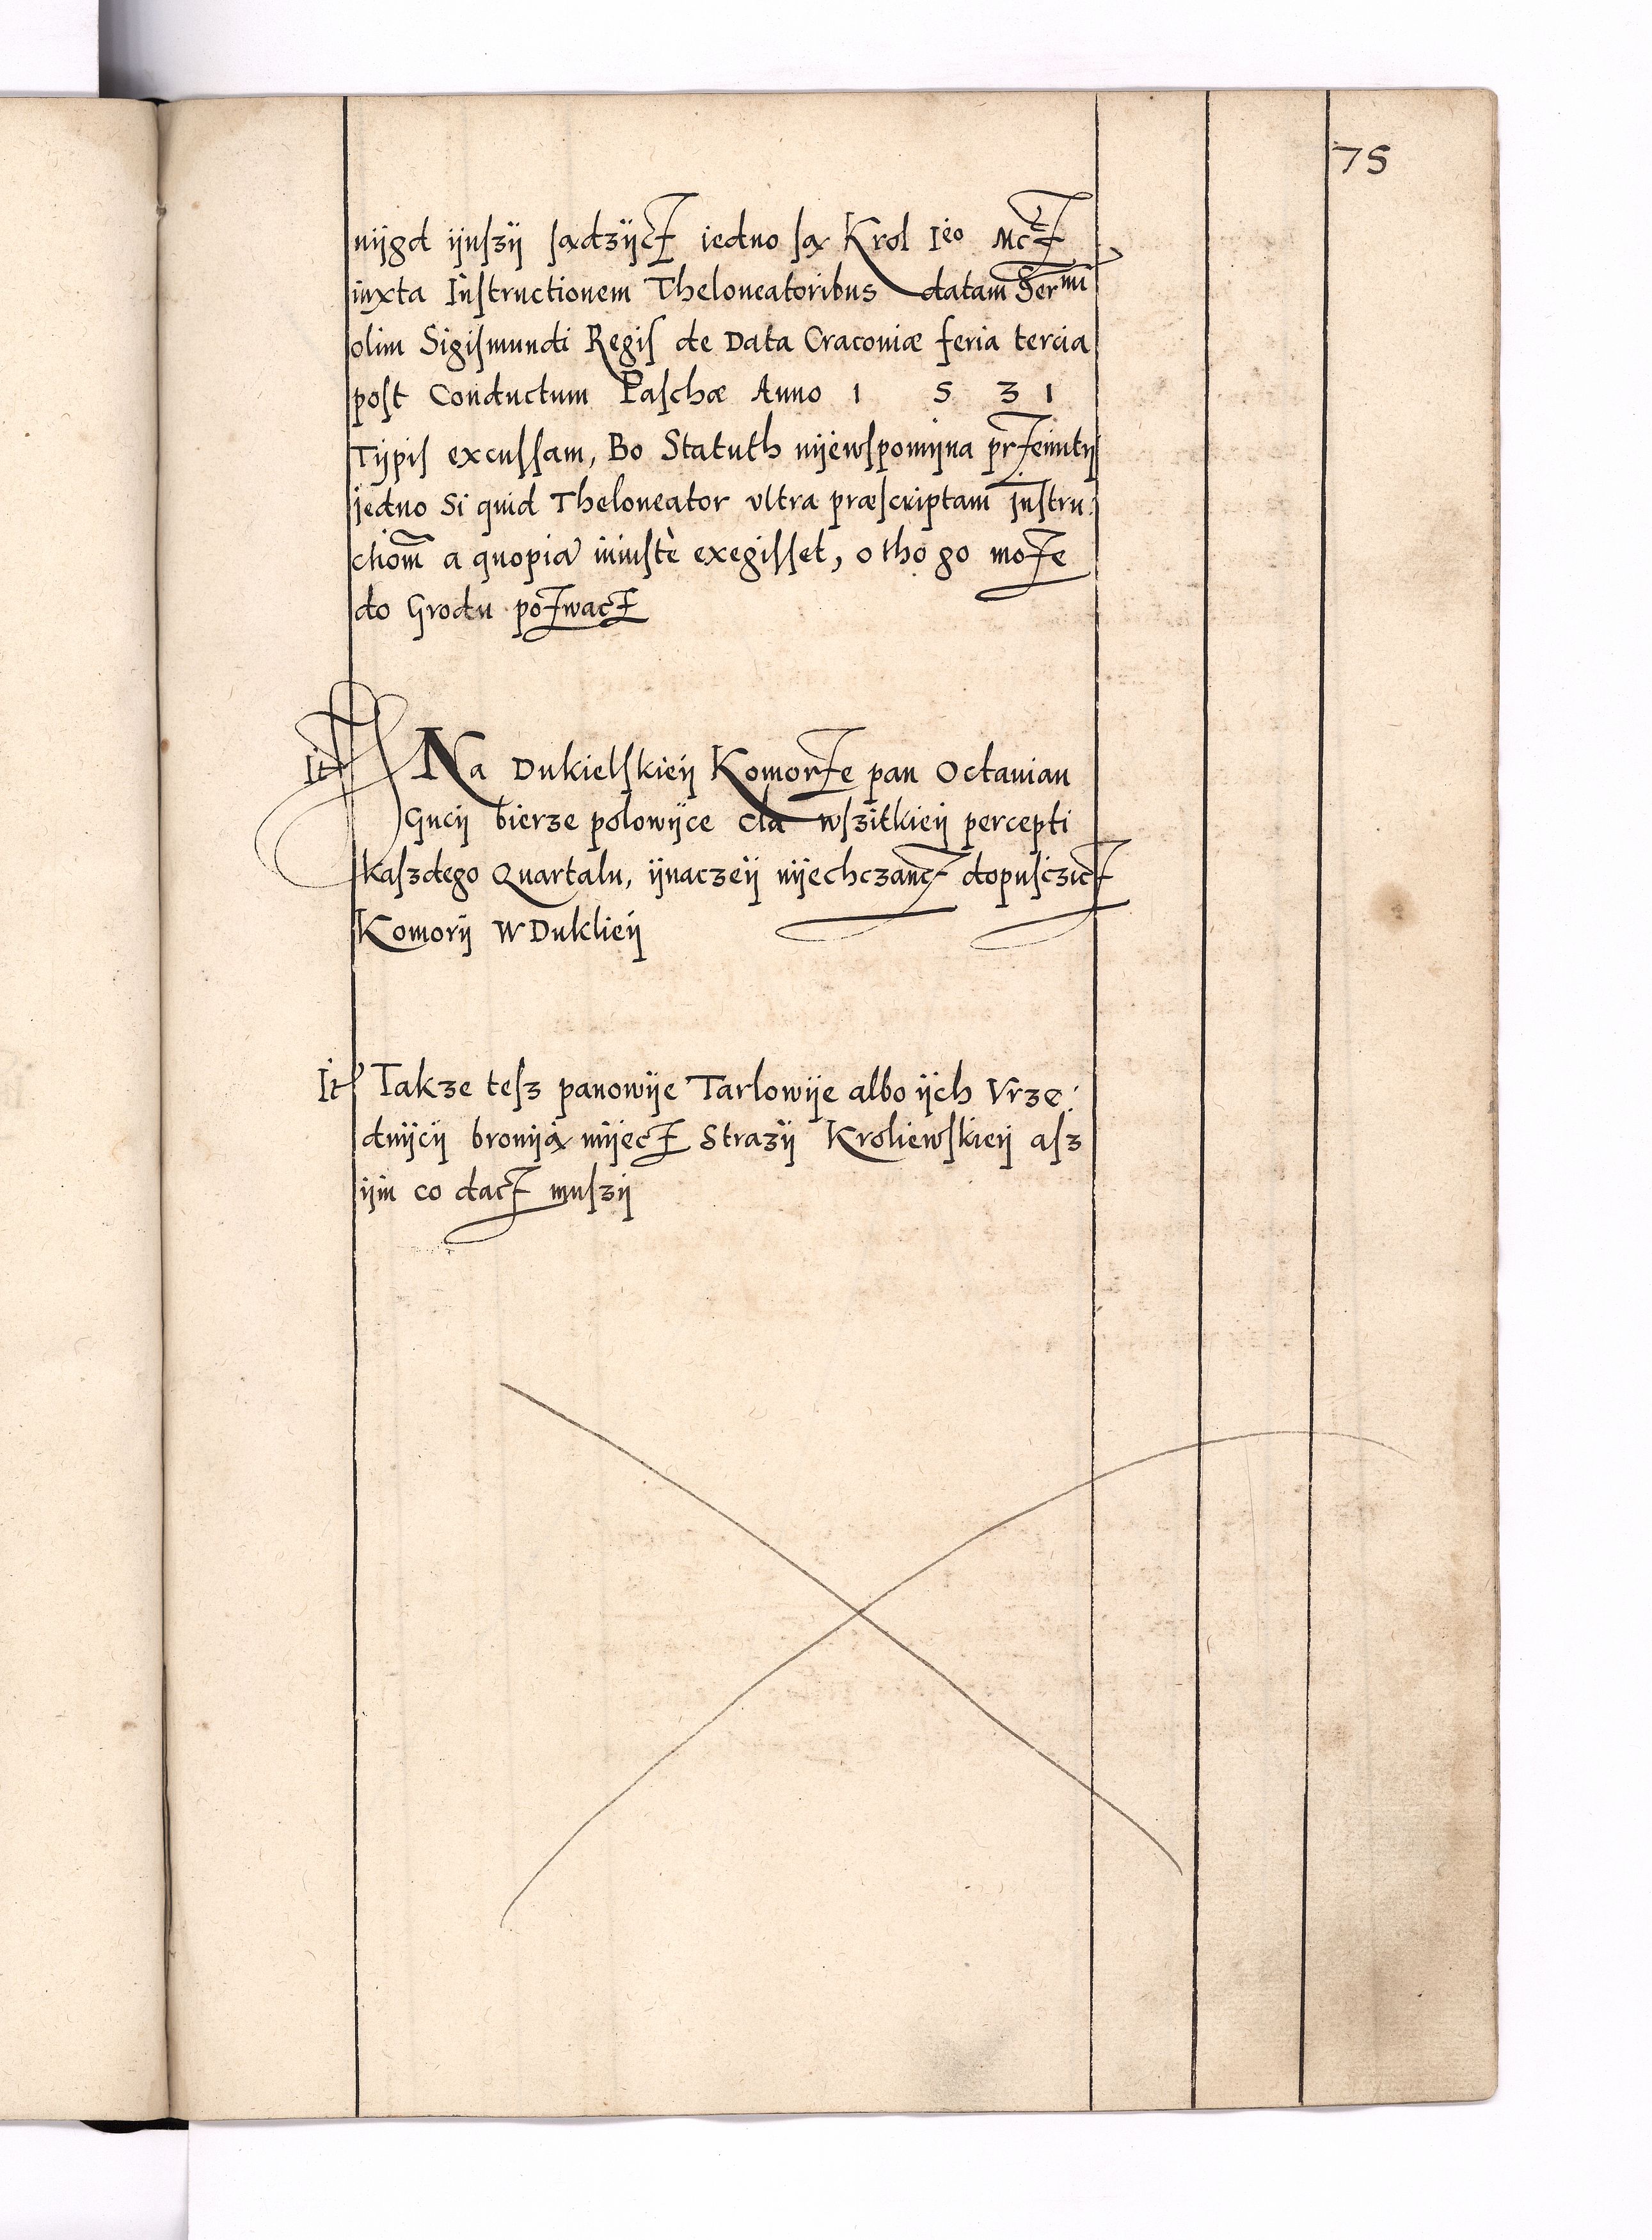 75
nijgd ijnſzij ſądzijcż iedno ſą Krol Ieo Mcż
iuxta Inſtructionem Theloneatoribus datam Sermi
olim Sigiſmundi Regiſ de Data Craconiæ feria tercia
poſt Conductum Paſchæ Anno 1 5 3 1
Tijpiſ excuſſam, Bo Statuth nijewſpomijna
jedno Si quid Theloneator vltra præſcriptam Inſtru:
ctiom̃ a quopiã iniuſtè exegiſſet, o tho go może
do Grodu pożwacż
It Na Dukielſkieij Komorże pan Octauian
Gucij bierze polowijce cla wſzitkieij percepti
kaſzdego Quartalu, ijnaczeij nijechczancż dopuſczicż
Komorij W Duklieij
It Takze teſz panowije Tarlowije albo ijch Vrzę:
dnijcij broniją mijecż Strazij Kroliewſkieij aſz
ijm co dacż muſzij